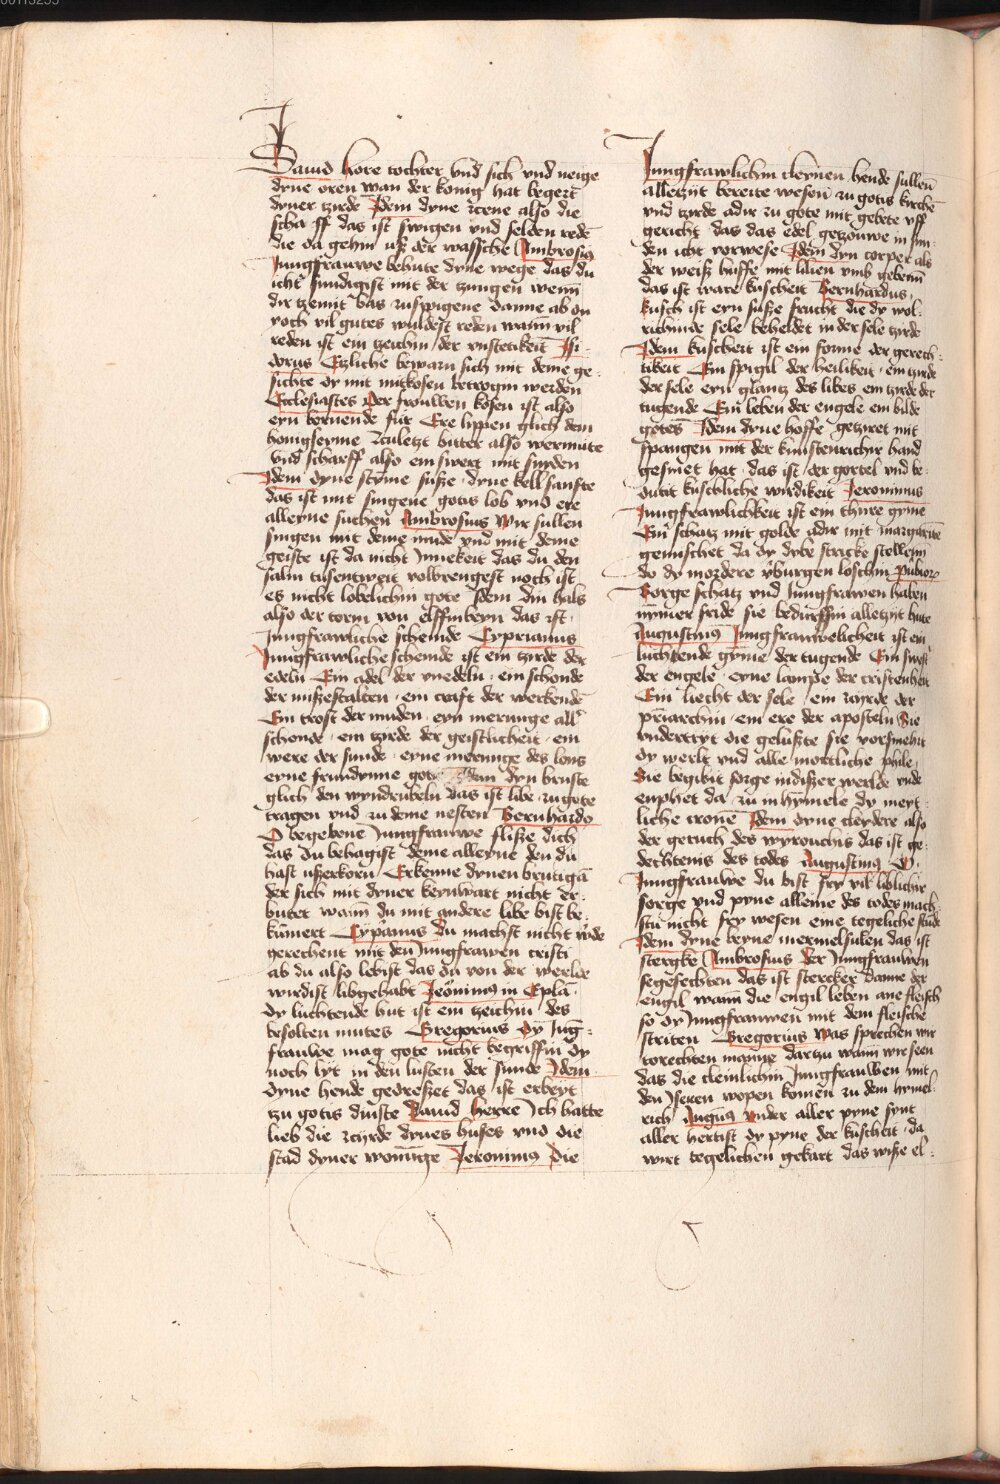 Dauid hore tochter vnd sich vnd neige
dyne oren wan der konig hat begert
dyner tzirde Idem dyne zcene also die
schaff das ist swigen vnd selden redē
die da gehin uß der wassche Ambrosius
Jungfrauwe behute dyne wege das du
icht sundigist mit der tzungen wenn
dir tzemit bas zuswigene danne ab du
joch vil gutes wuldest reden wann vil
reden ist ein zeichin der vnstetikeit Jsi-
dorus Etzliche bewarn sich mit deme ge-
sichte dy mit mitkosen betrogin werden
Ecclesiastes Der frouwen kosen ist also
eyn bornende fur Ere lippen glich dem
honigseyme zculetzt bitter also wermute
Vnd scharff also ein swert mit snyden
Idem dyne styme suße dyne kell sanfte
das ist mit singene gotis lob vnd ere
alleyne suchen Ambrosius Wir sullen
singen mit deme mude vnd mit deme
geiste ist da nicht Jnnekeit das du den
salm tusentweit volbrengest noch ist
es nicht lobelichin gote Idem din hals
also der torm von elffinbeyn das ist
Jungfrawliche schemde Cyprianus
Jungfrawliche schemde ist ein tzirde der
edeln Ein adel der vnedeln ein schonde
der mißestalten ein craft der werkendē
Ein trost der muden eyn merunge all
schonde ein tzirde der geistlicheit ein
were der sunde eyne merunge des lons
eyne frundynne got Idem dyn bruste
glich den wyndrubeln das ist libe zu gote
tragen vnd zu deme nesten Bernhardo
O begebene Jungfrauwe fliße dich
das du behagist deme alleyne den du
hast ußerkorn Erkenne dynen brutigā
der sich mit dyner keynwart nicht er-
butet wann du mit andere libe bist be-
kūmert Cypānus Du machst nicht
gerechent mit den Jungfrawen cristi
ab du also lebist das du von der werlde
wirdist libgehabt Jeōnimus in Epla
Dy luchtende hut ist ein zeichin des
besolten mutes Gregorius Dy Jug-
frauwe mag gote nicht begriffin dy
noch lyt in den lusten der sunde Idem
dyne hende gedreßet das ist erbeyt
zu gotis dinste Dauid herre Jch hatte
lieb die zcyrde dynes huses vnd die
stad dyner wonunge Jeronimus Die
Jungfrawlichin cleynen hende sullen
alletzyt bereite wesen zu gotis kirchē
vnd tzirde adir zu gote mit gebete uff
gericht das das edel getzouwe in sun-
den icht vorwese Idem dyn corper als
der weiß huffe mit lilien vmb gebenn
das ist ware kuscheit Bernhardus
Kusch ist eyn suße frucht die dy wol-
richinde sele beheldet in der sele tzirde
Idem kuscheit ist ein forme der gerech-
tikeit Ein spigil der heilikeit ein tzirde
der sele eyn glantz des libes ein tzirde der
tugende Ein leben der engele ein bilde
gotes Idem dyne hoffe getziret mit
spangen mit der kunstenrichir hand
gesmet hat das ist der gortel vnd be-
dutit kuschliche wirdikeit Jeronimus
Jungfrawlichkeit ist ein thure gyme
Ein schatz mit golde adir mit margarite
gemischet da dy dybe stricke stellenn
do dy mordere vburgen loschin
Borge schatz vnd Jungfrawen haben
nymer fride sie bedurffin alletzyt hute
Augustinus Jungfrauwelicheit ist ein
luchtende gyme der tugende Ein swest
der engele eyne lampe der cristenheit
Ein liecht der sele ein zcyrde der
priarchin ein ere der aposteln Sie
vndertryt die geluste sie vorsmehit
dy werlt vnd alle mottliche phile
Sie begibit sorge in dißer werlde vnde
enphet da zu in hymele dy meyt-
liche cronē Idem dyne cleydere also
der geruch des wyrouchis das ist ge-
dechtenis des todes Augustinus O
Jungfrauwe du bist fry vil liblichir
sorge vnd pyne alleine des todes mach-
stu nicht fry wesen eine tegeliche stūde
Idem dyne beyne mermelsulen das ist
stergke Ambrosius Der Jungfrauwen
segefechten das ist stercker danne der
engil wann die engil leben ane fleisch
so dy Jungfrauwen mit dem fleische
striten Gregorius Was sprechen wir
torechten manne dartzu wann wir seen
das die cleinlichin Jungfrauwen mit
den Jseren wopen komen zu dem hymel-
rich Augus Vnder aller pyne synt
aller hertist dy pyne der kuscheit da
wirt tegelichen gekart das wiße el-